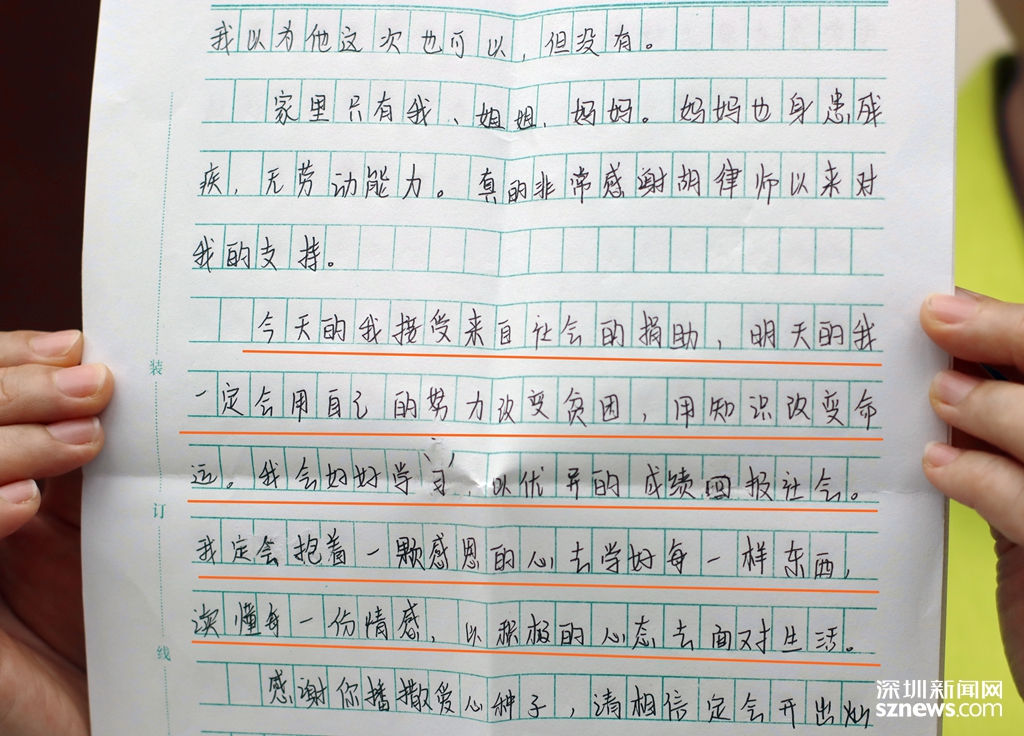 我以为他这次也可以，但没有。
家里只有我、姐姐、妈妈。妈妈也身患残
疾，无劳动能力。真的非常感谢胡律师以来对
我的支持。
今天的我接受来自社会的捐助，明天的我
一定会用自己的努力改变贫困，用知识改变命
运。我会好好学习，以优异的成绩回报社会。
我定会抱着一颗感恩的心去学好每一样东西，
读懂每一份情感，以积极的心态去面对生活。
感谢你播撒爱心种子，请相信定会开出灿
装
订
线
深圳新闻网
sznews.com